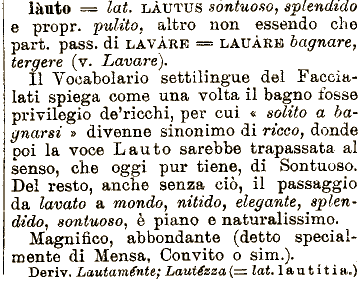 làuto = lat. LÀUTUS sontuoso, splendido
e propr. pulito, altro non essendo che
part. pass. di LAVÀRE = LAUÀRE bagnare,
tergere (v. Lavare).
Il Vocabolario settilingue del Facciа-
lati spiega come una volta il bagno fosse
privilegio de'ricchi, per cui « solito a ba-
gnarsi » divenne sinonimo di ricco, donde
poi la voce Lauto sarebbe trapassata al
senso, che oggi pur tiene, di Sontuoso.
Del resto, anche senza ciò, il passaggio
da lavato a mondo, nitido, elegante, splen-
dido, sontuoso, è piano e naturalissimo.
Magnifico, abbondante (detto special-
mente di Mensa, Convito o sim.).
Deriv. Lautaménte; Lautézza (= lat. lautitia.)